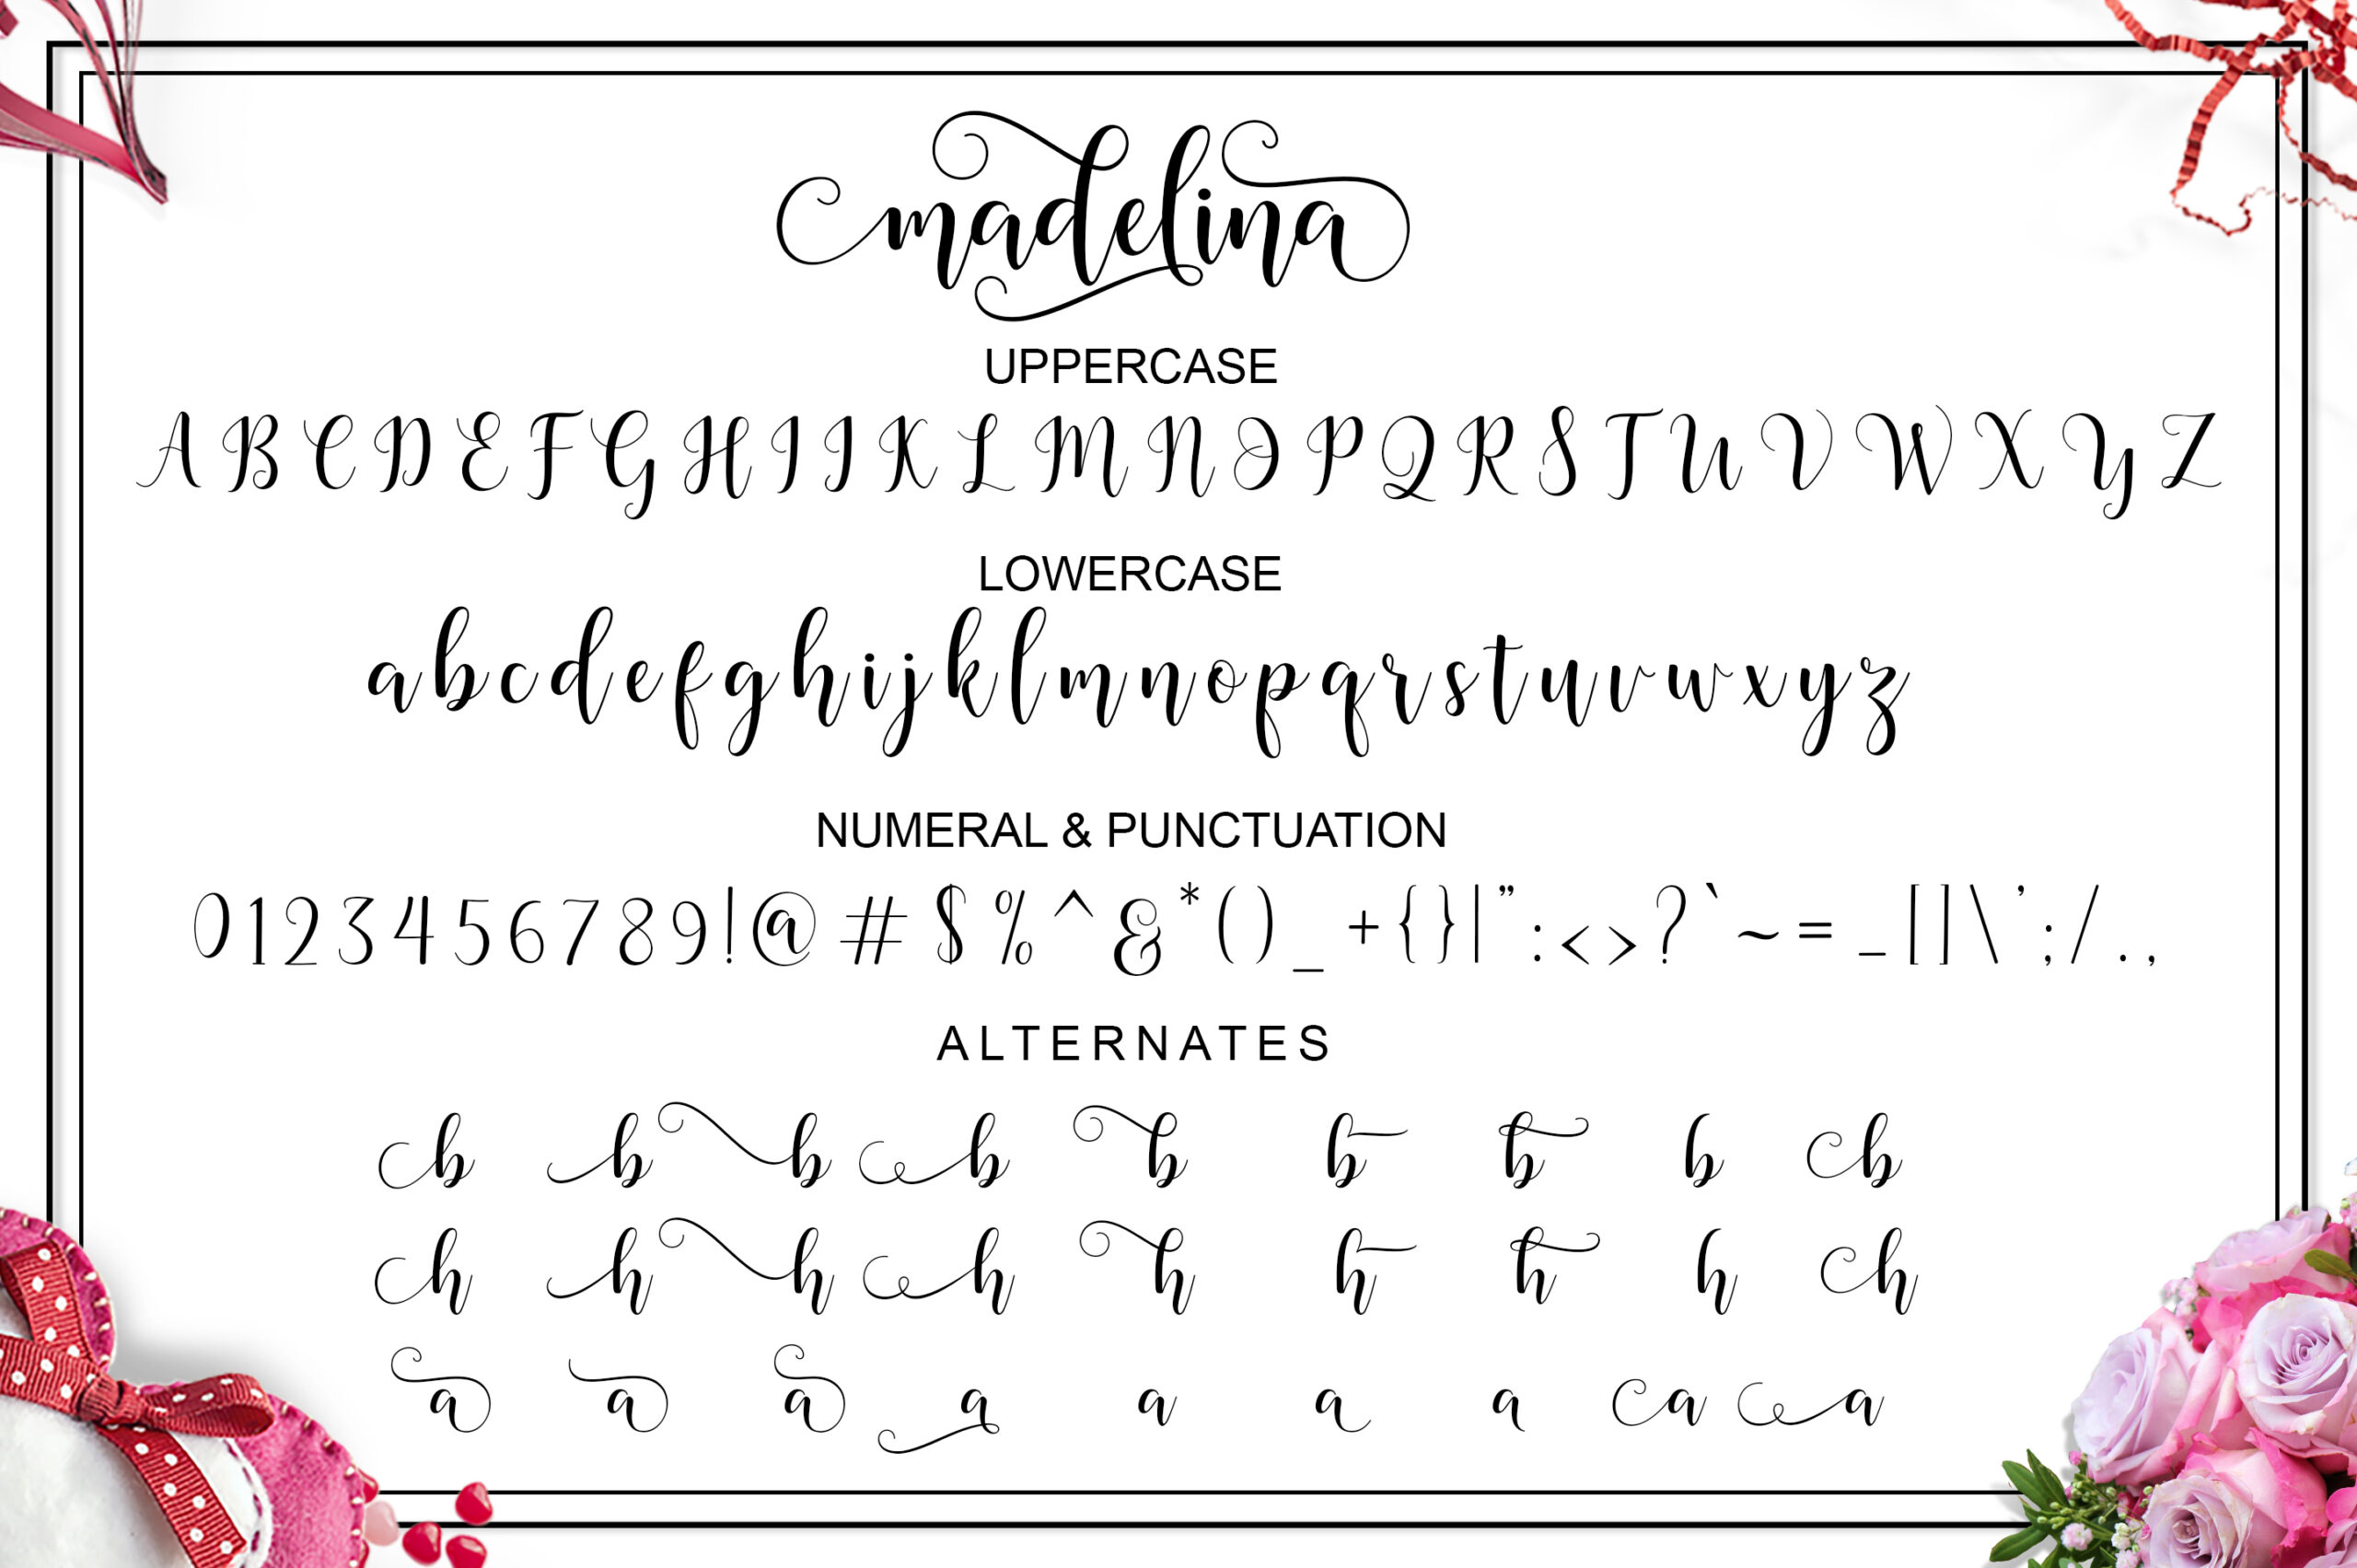 madelina
UPPERCASE
A B C D E F G H I J K L M N O P Q R S T U V W X Y Z
LOWERCASE
a b c d e f g h i j k l m n o p q r s t u v w x y z
NUMERAL & PUNCTUATION
0 1 2 3 4 5 6 7 8 9 ! @ # $ % ^ & * ( ) _ + { } | " : < > ? ` ~ = _ [ ] \ ' ; / . ,
ALTERNATES
b b b b b b b b b
h h h h h h h h h
a a a a a a a a a